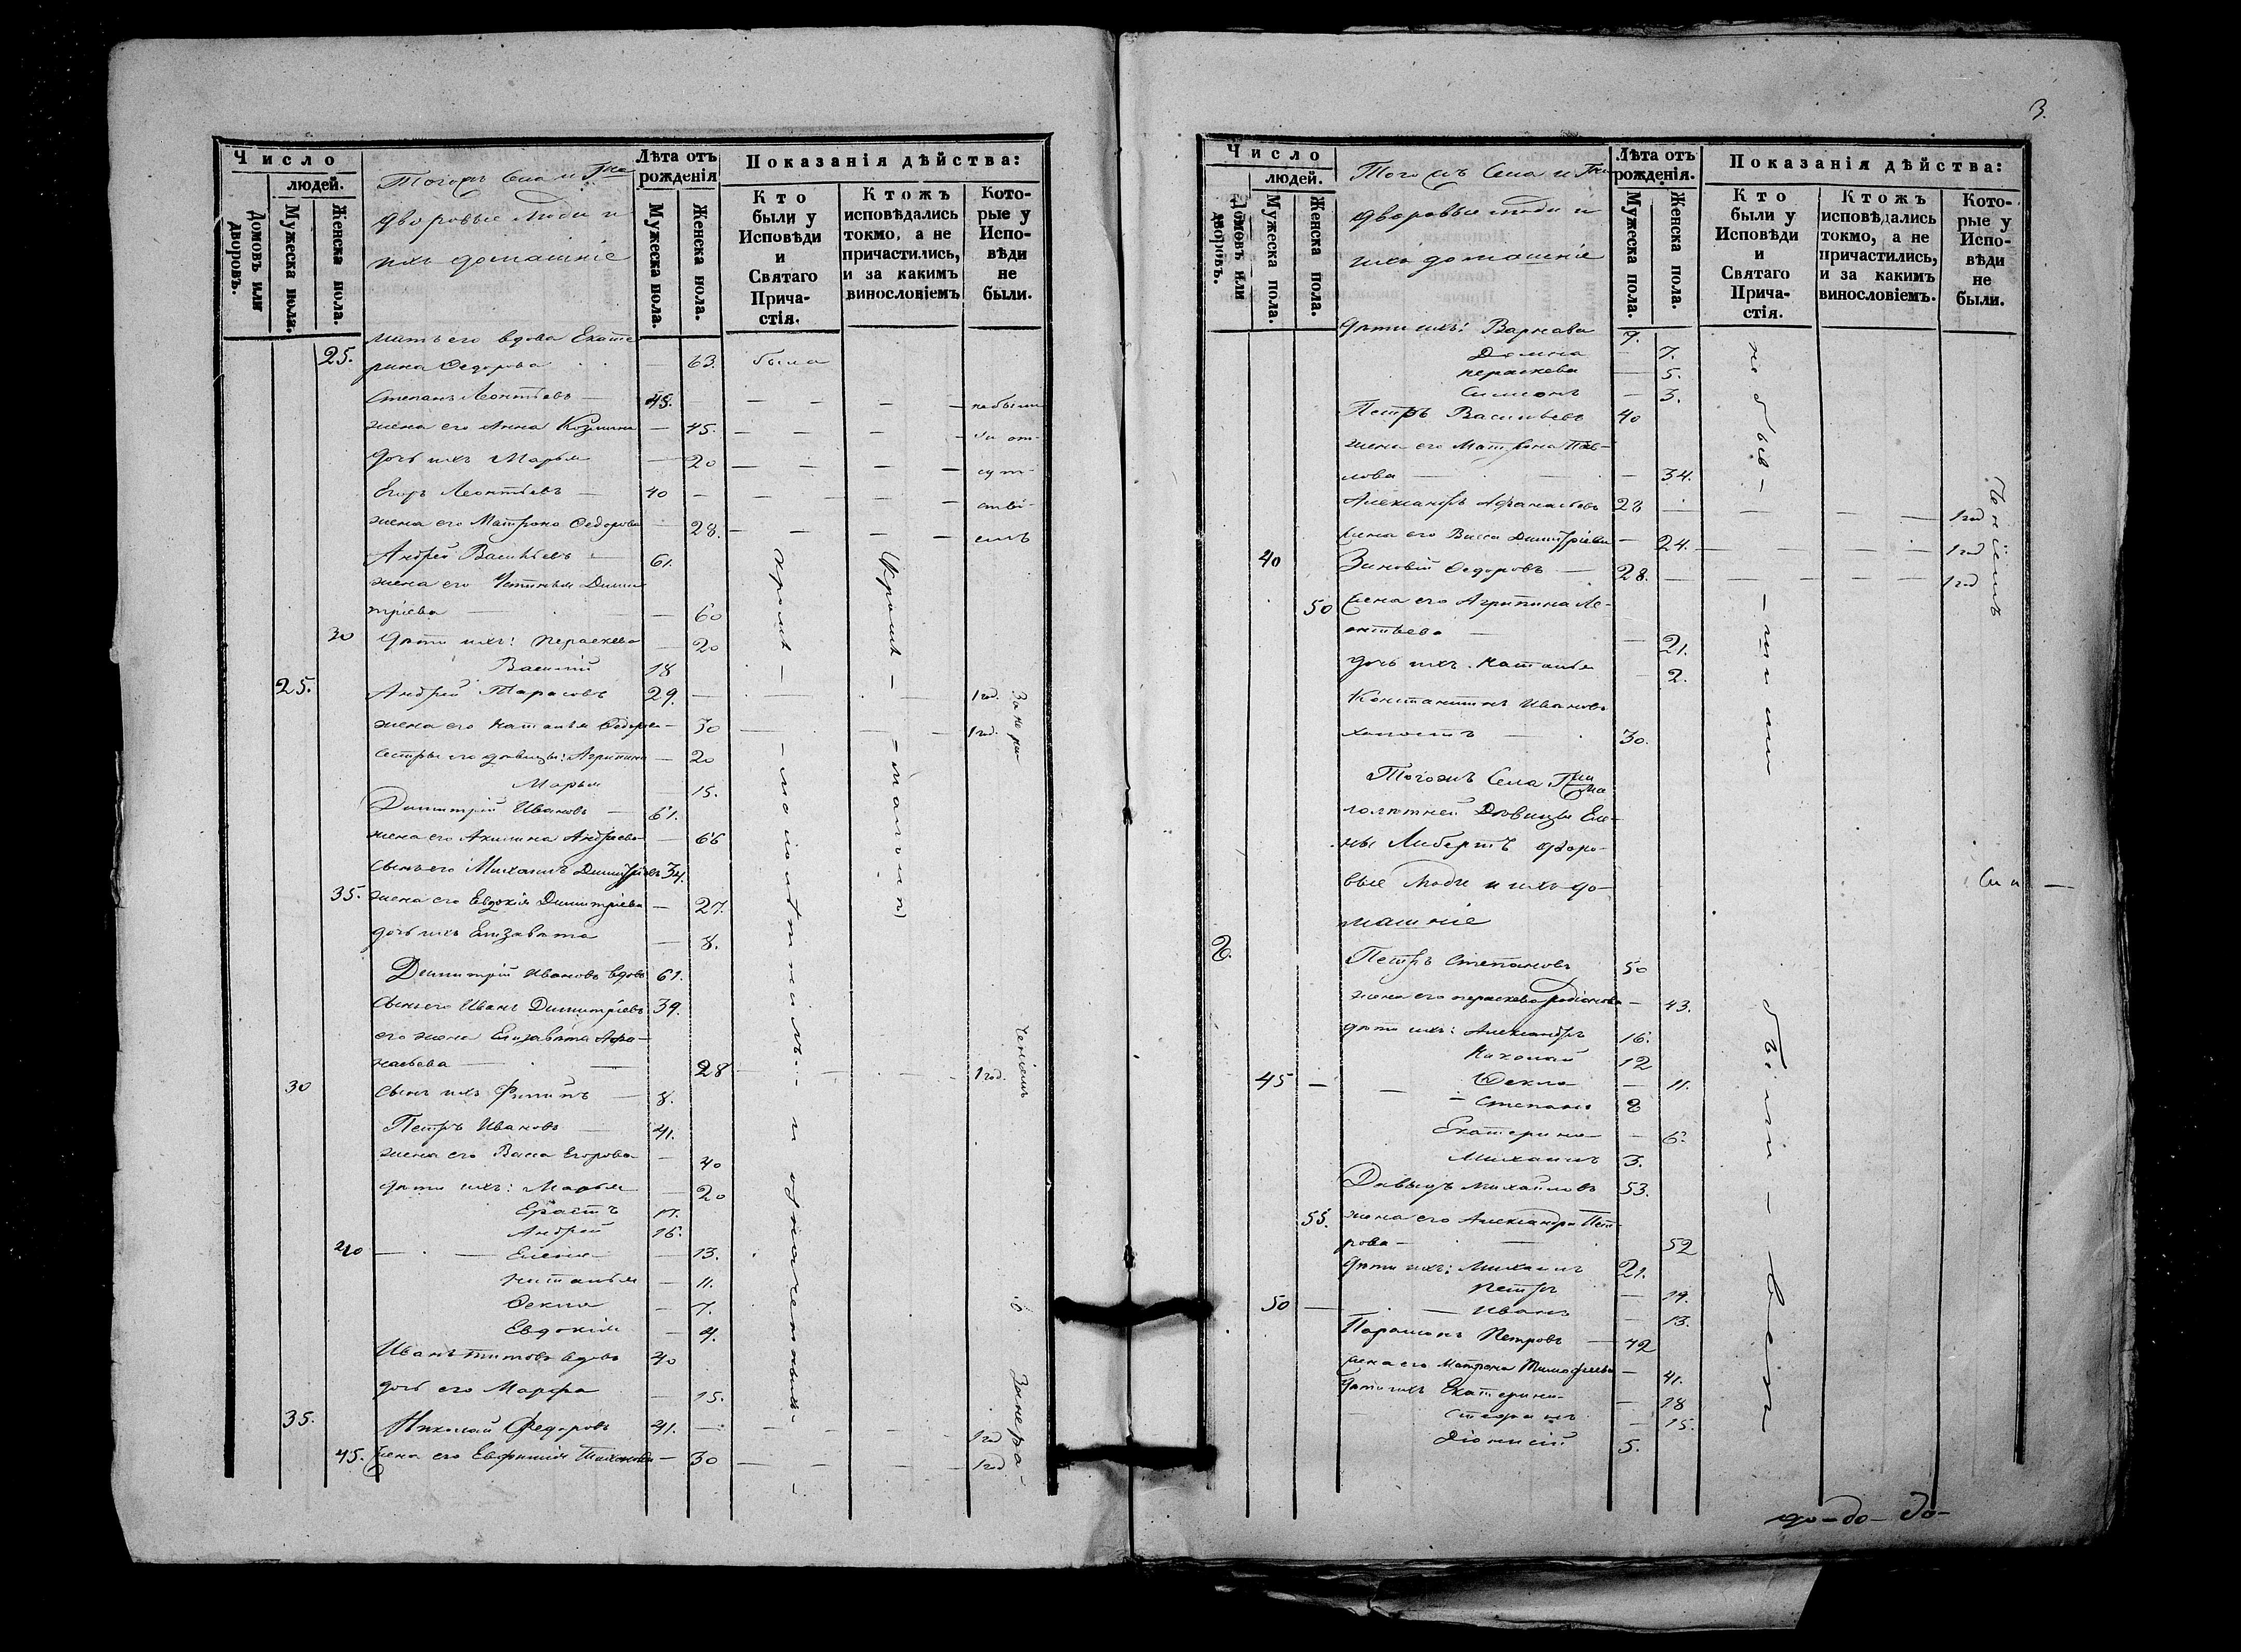 Число
людей.
Домовъ или дворовъ.
Мужеска пола.
Женска пола.
Тогожъ Села и Гна
дворовые люди и
ихъ домашніе
Лѣта отъ рожденія
Мужеска пола.
Женска пола.
Показанія дѣйства:
Кто были у Исповѣди и Святаго Причастія.
Ктожъ исповѣдались токмо, а не причастились, и за какимъ винословіемъ
Которые у Исповѣди не были.
мать его вдова Екате
25. рина Ѳедорова — 63. была
Степанъ Леонтьевъ — 45. — — — — небыли
жена его Анна Козмина — 45. — — — — за от-
дочь ихъ Марья — 20 — — — — сут-
Егоръ Леонтьевъ — 40 — — — — стві-
жена его Матрона Ѳедорова — 28. — — — — емъ
Андрей Васильевъ — 61.
жена его Устинья Дими
тріева — — 60
30 дѣти ихъ: Параскева — 20
Василій 18
25. Андрей Тарасовъ 29. — — — 1 год.
жена его Наталья Ѳедорова — 30 — — — 1 год.
сестры его дѣвицы: Агрипина — 20
Марья — 15.
Димитрій Ивановъ — 61.
жена его Акилина Андреева — 66
сынъ его Михаилъ Димитріевъ 34.
35. жена его Евдокія Димитріева — 27.
дочь ихъ Елизавета — 8.
Димитрій Ивановъ вдовъ 61.
сынъ его Иванъ Димитріевъ 39.
его жена Елизавета Афа-
насьева — — 28 — — — 1 год.
30 сынъ ихъ Филипъ — 8.
Петръ Ивановъ — 41.
жена его Васса Егорова — 40
дѣти ихъ: Марья — 20
Ерастъ 17.
Андрей 16.
40 — — Елена — 13.
Наталья — 11.
Ѳекла — 7.
Евдокія — 4.
Иванъ Титовъ вдовъ 40
дочь его Марфа — 15.
35. Николай Федоровъ 41. — — — — 1 год
45. Жена его Евфимія Тихонова — 30 — — — 1 год
кромѣ — — малолѣтнимъ — и означенныхъ —
(кромѣ — — малыхъ)
За нера
ченіемъ
За нера-
3.
Число
людей.
Домовъ или дворовъ.
Мужеска пола.
Женска пола.
Тогожъ Села и Гна
дворовые люди и
ихъ домашніе
Лѣта отъ рожденія.
Мужеска пола.
Женска пола.
Показанія дѣйства:
Кто были у Исповѣди и Святаго Причастія.
Ктожъ исповѣдались токмо, а не причастились, и за какимъ винословіемъ.
Которые у Исповѣди не были.
дѣти ихъ: Варнава 9.
Домна — 7.
Параскева — 5.
Симеонъ — 3.
Петръ Васильевъ 40
жена его Матрона Пав-
лова — — 34.
Александръ Афанасьевъ 28 — — — — 1 год
Жена его Васса Димитріева — 24. — — — — 1 год
40 Зиновій Ѳедоровъ — 28. — — — — 1 год
50 Жена его Агрипина Ле-
онтьева — — 21.
дочь ихъ Наталья — 2.
Константинъ Ивановъ
холостъ — 30.
Тогожъ Села Гжи Ма
лолѣтней Дѣвицы Еле-
ны Либертъ дворо-
вые люди и ихъ до-
машніе
2.
Петръ Степановъ 50
жена его Параскева Родіонова — 43.
дѣти ихъ: Александръ 16.
Николай 12
45 — — Ѳекла — 11.
— Степанъ 8
Екатерина — 6.
Михаилъ 3.
Давыдъ Михайловъ 53.
55. жена его Александра Пет-
рова — — 52
дѣти ихъ: Михаилъ 21.
Петръ — 19.
50 — — Иванъ — 13.
Парамонъ Петровъ — 42
Жена его Матрона Тимофеева — 41.
дѣти ихъ Екатерина — 18
Стефанъ — 15.
Діонисій 5.
ченіемъ